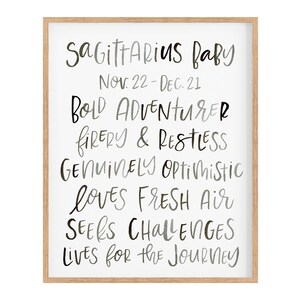 Sagittarius Baby
Nov. 22 - Dec. 21
Bold Adventurer
Fiery & Restless
Genuinely Optimistic
Loves Fresh Air
Seeks Challenges
Lives for the Journey